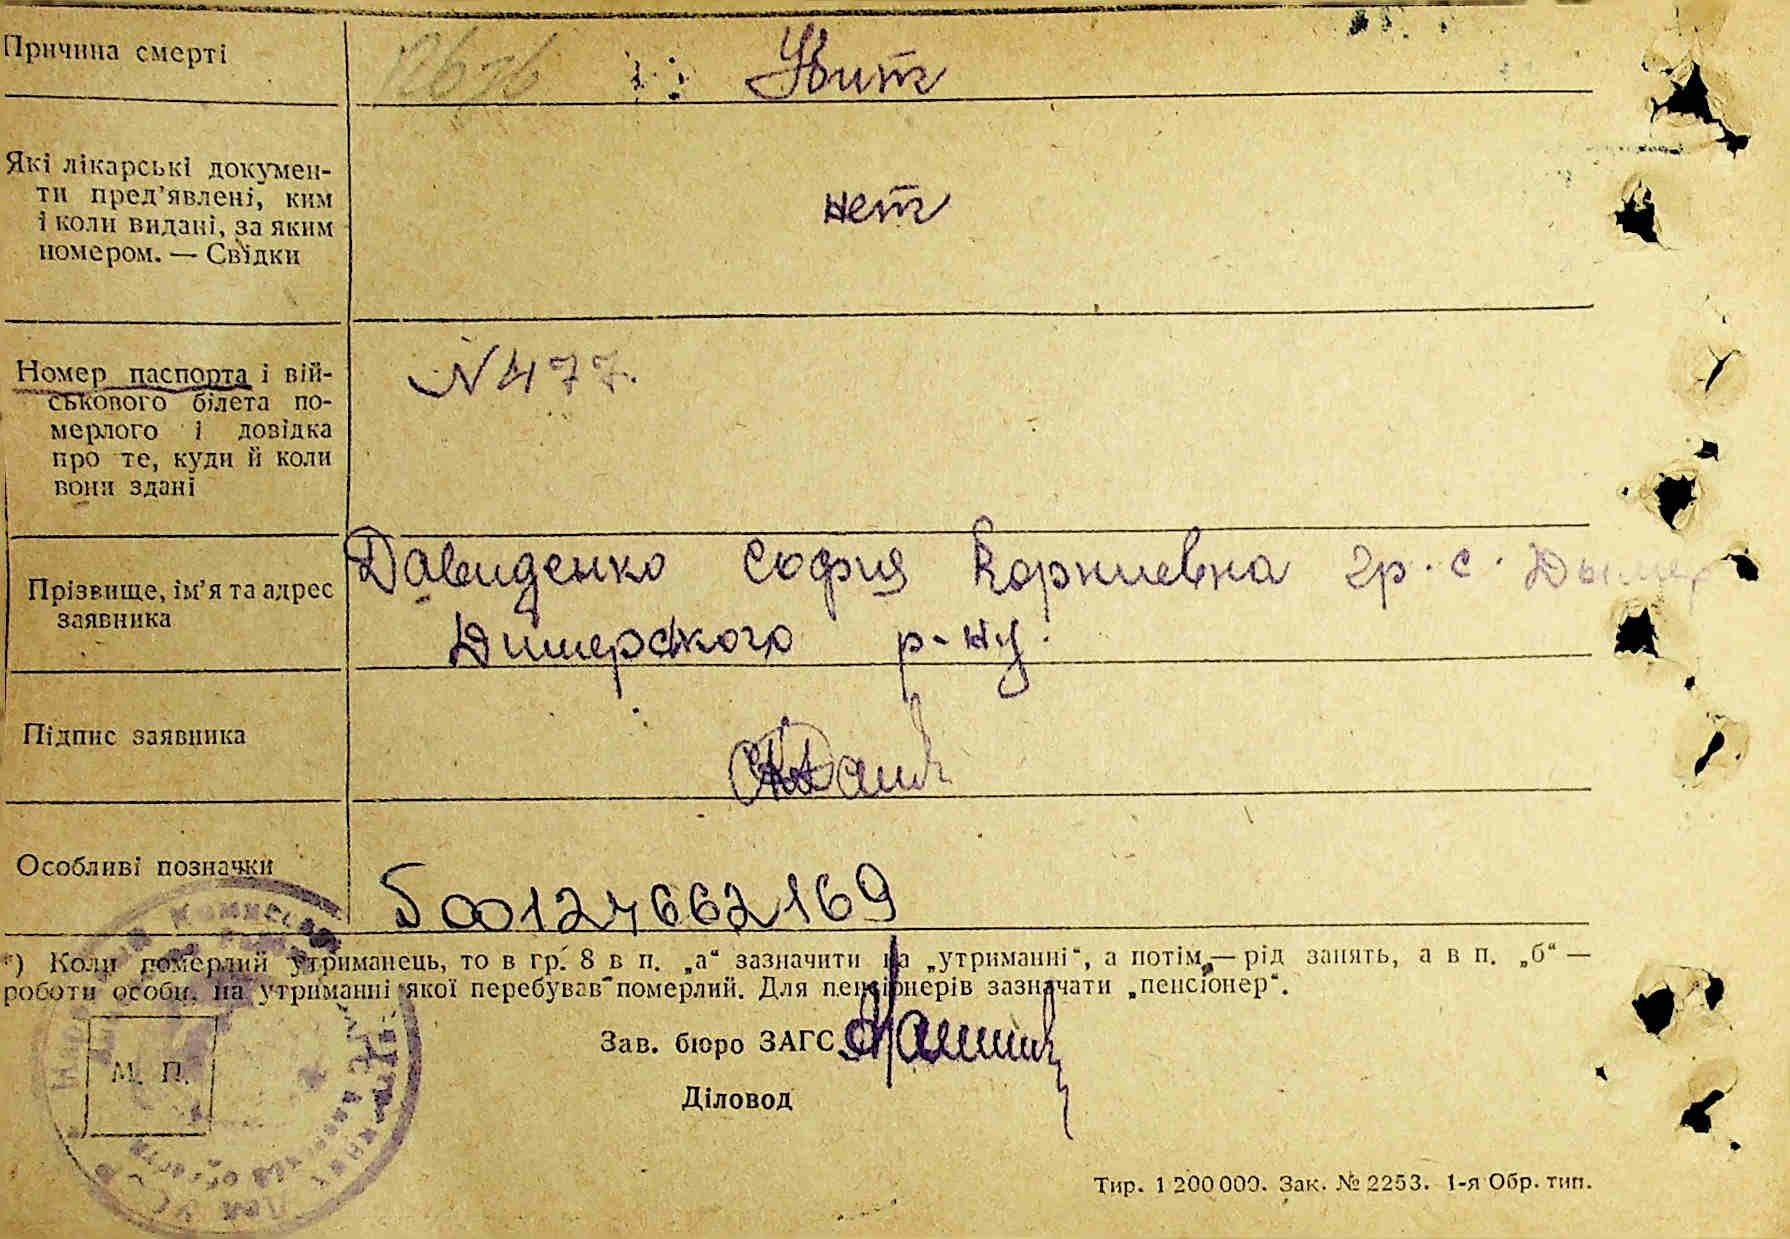 Причина смерті
Убит
Які лікарські докумен-
ти пред’явлені, ким
і коли видані, за яким
номером. — Свідки
нет
Номер паспорта і вій-
ськового білета по-
мерлого і довідка
про те, куди й коли
вони здані
№ 477.
Прізвище, ім’я та адрес
заявника
Давиденко София Корниевна гр. с. Дымер
Димерского р-ну.
Підпис заявника
Особливі позначки
500124662169
*) Коли померлий утриманець, то в гр. 8 в п. „а“ зазначити на „утриманні“, а потім — рід занять, а в п. „б“ —
роботи особи, на утриманні якої перебував померлий. Для пенсіонерів зазначати „пенсіонер“.
Зав. бюро ЗАГС
М. П.
Діловод
Тир. 1 200 000. Зак. № 2253. 1-я Обр. тип.